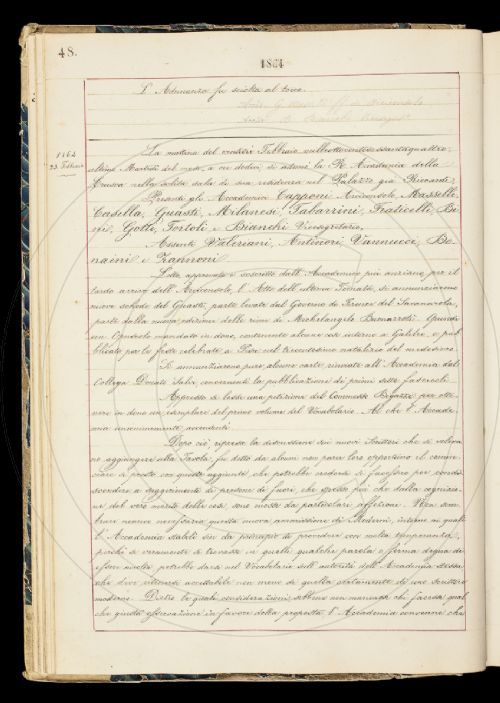 48.
1864
L'Adunanza fu sciolta al tocco.
1864
23. Febbraio
La mattina del ventitrè Febbraio milleottocentosessantaquattro,
ultimo Martedì del mese, a ore dodici si adunò la R. Accademia della
Crusca nella solita sala di sua residenza nel Palazzo già Riccardi.
Presenti gli Accademici Capponi Arciconsolo, Masselli
Casella, Guasti, Milanesi, Tabarrini, Fraticelli Bi
ni, Gotti, Tortoli e Bianchi Vicesegretario,
Assenti Valeriani, Antinori, Vannucci, Bo
naini e Zannoni.
Letto, approvato e soscritto dall'Accademico più anziano per il
tardo arrivo dell'Arciconsolo, l'Atto dell'ultima Tornata, si annunziarono
nuove schede del Guasti, parte levate dal Governo di Firenze del Savonarola,
parte dalla nuova edizione delle rime di Michelangelo Buonarroti. Quindi
un Opuscolo mandato in dono, contenente alcune cose intorno a Galileo, e pub
blicato per le feste celebrate a Pisa nel trecentesimo natalizio del medesimo.
Si annunziarono pure alcune carte rinviate all'Accademia dal
Collega Donato Salvi concernenti la pubblicazione dei primi sette fascicoli.
Appresso si lesse una petizione del Commesso Bigazzi per otte
nere in dono un esemplare del primo volume del Vocabolario. Al che l'Accade
mia unanimemente acconsentì.
Dopo ciò, ripresa la discussione sui nuovi Scrittori che si voleva
no aggiungere alla Tavola, fu detto da alcuni non parer loro opportuno il comin
ciare sì presto con queste aggiunte, che potrebbe credersi si facessero per condi
scendere a suggerimenti di persone di fuori, che spesso più che dalla cognizio
ne del vero merito delle cose sono mosse da particolari affezioni. Non sem
brar neanco necessaria questa nuova ammissione di Moderni, intorno ai quali
l'Accademia stabilì sin da principio di procedere con molta temperanza,
perchè se veramente si trovasse in quelli qualche parola o forma degna di
esser accolta, potrebbe darsi nel Vocabolario sull'autorità dell'Accademia stessa
che deve ritenersi accettabile non meno di quella solitamente di uno scrittore
moderno. Dietro le quali considerazioni, sebbene non mancasse chi facesse qual
che giusta osservazione in favore della proposta, l'Accademia convenne che